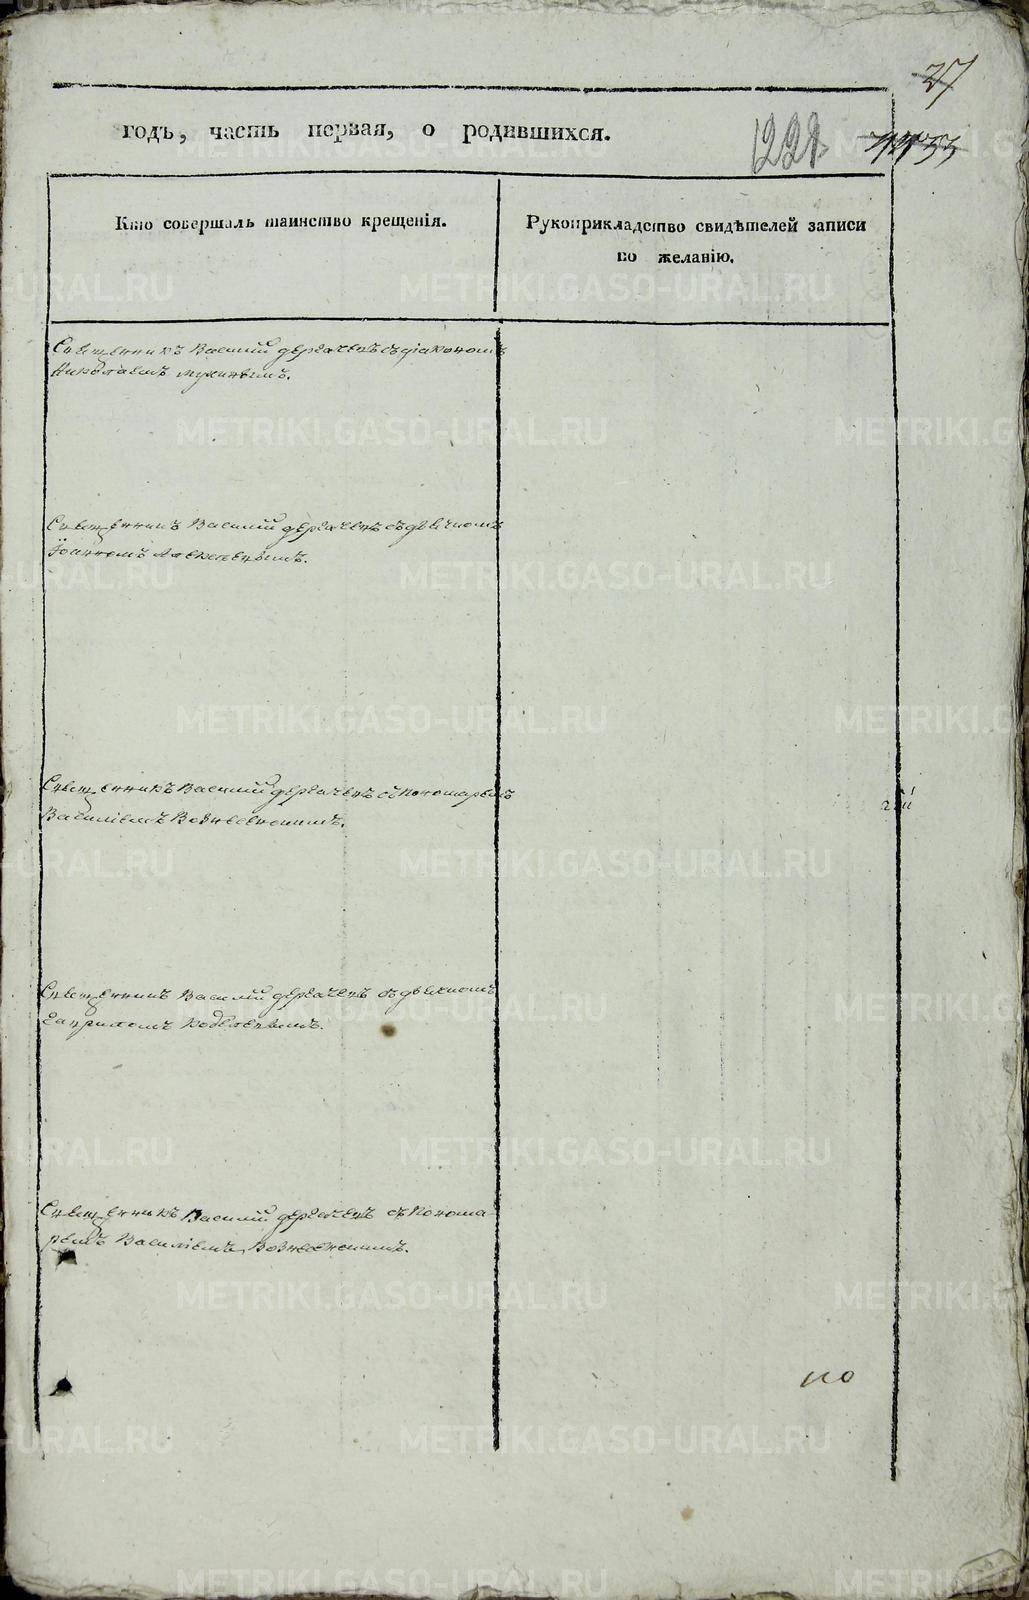 27
годъ, часть первая, о родившихся.
1229
Кто совершалъ таинство крещенія.
Рукоприкладство свидѣтелей записи
по желанію.
Священникъ Василій Дергачевъ съ діакономъ
Николаемъ
Священникъ Василій Дергачевъ съ дьячкомъ
Іоанномъ Алексѣевымъ.
Священникъ Василій Дергачевъ съ пономаремъ
Василіемъ Вознесенскимъ.
Священникъ Василій Дергачевъ съ дьячкомъ
Гавриломъ
Священникъ Василій Дергачевъ съ понома-
ремъ Василіемъ Вознесенскимъ.
по
METRIKI.GASO-URAL.RU